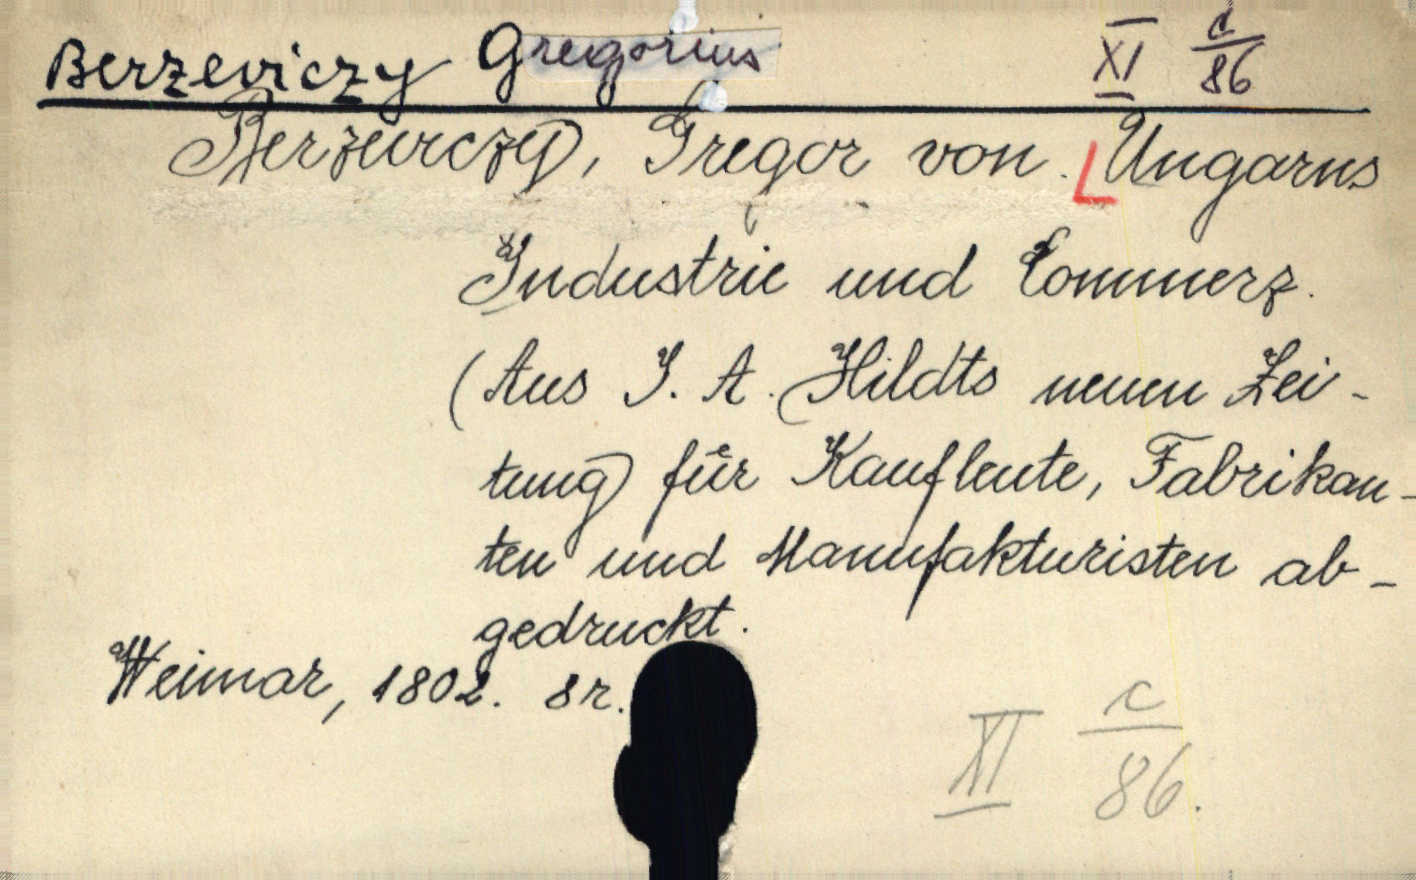 Berzeviczy Gregorius XI c/86
Berzeviczy, Gregor von. Ungarns
Industrie und Commerz.
(Aus J. A. Hildts neuen Zei-
tung für Kaufleute, Fabrikan-
ten und Manufakturisten ab-
gedruckt.
Weimar, 1802. 8r.
XI c/86.